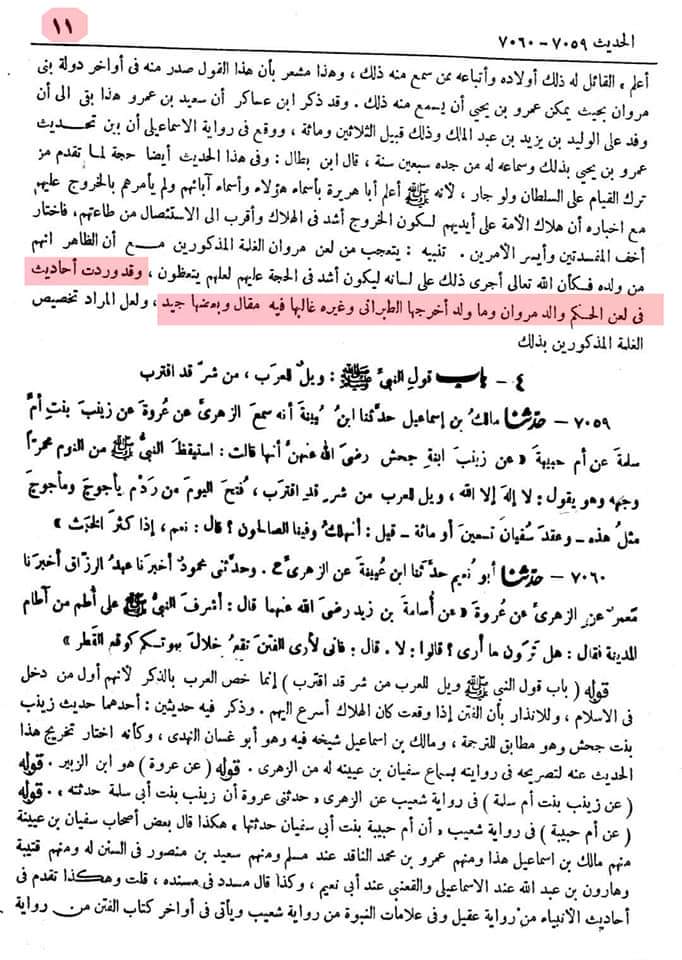 ١١
الحديث ٧٠٥٩ - ٧٠٦٠
أعلم، القائل له ذلك أولاده وأتباعه ممن سمع منه ذلك، وهذا مشعر بأن هذا القول صدر منه فى أواخر دولة بنى
مروان بحيث يمكن عمرو بن يحيى أن يسمع منه ذلك. وقد ذكر ابن عساكر أن سعيد بن عمرو هذا بقى الى أن
وفد على الوليد بن يزيد بن عبد الملك وذلك قبيل الثلاثين ومائة، ووقع فى رواية الاسماعيلى أن بين تحديث
عمرو بن يحيى بذلك وسماعه له من جده سبعين سنة، قال ابن بطال: وفى هذا الحديث أيضا حجة لما تقدم من
ترك القيام على السلطان ولو جار، لأنه ﷺ أعلم أبا هريرة بأسماء هؤلاء وأسماء آبائهم ولم يأمرهم بالخروج عليهم
مع اخباره أن هلاك الأمة على أيديهم لكون الخروج أشد فى الهلاك وأقرب الى الاستئصال من طاعتهم، فاختار
أخف المفسدتين وأيسر الأمرين. تنبيه: يتعجب من لعن مروان الغلمة المذكورين مع أن الظاهر أنهم
من ولده فكأن الله تعالى أجرى ذلك على لسانه ليكون أشد فى الحجة عليهم لعلهم يتعظون، وقد وردت أحاديث
فى لعن الحكم والد مروان وما ولد أخرجها الطبرانى وغيره غالبها فيه مقال وبعضها جيد، ولعل المراد تخصيص
الغلمة المذكورين بذلك
٤ - باب قول النبى ﷺ: ويل للعرب، من شر قد اقترب
٧٠٥٩ - حدثنا مالك بن إسماعيل حدثنا ابن عيينة أنه سمع الزهرى عن عروة عن زينب بنت أم
سلمة عن أم حبيبة « عن زينب ابنة جحش رضى الله عنهن أنها قالت: استيقظ النبى ﷺ من النوم محمرا
وجهه وهو يقول: لا إله إلا الله، ويل للعرب من شر قد اقترب، فتح اليوم من ردم يأجوج ومأجوج
مثل هذه - وعقد سفيان تسعين أو مائة - قيل: أنهلك وفينا الصالحون؟ قال: نعم، إذا كثر الخبث »
٧٠٦٠ - حدثنا أبو نعيم حدثنا ابن عيينة عن الزهرى ع. وحدثنى محمود أخبرنا عبد الرزاق أخبرنا
معمر عن الزهرى عن عروة « عن أسامة بن زيد رضى الله عنهما قال: أشرف النبى ﷺ على أطم من آطام
المدينة فقال: هل ترون ما أرى؟ قالوا: لا. قال: فانى لأرى الفتن تقع خلال بيوتكم كوقع القطر »
قوله (باب قول النبى ﷺ ويل للعرب من شر قد اقترب) إنما خص العرب بالذكر لأنهم أول من دخل
فى الاسلام، وللانذار بأن الفتن إذا وقعت كان الهلاك أسرع اليهم. وذكر فيه حديثين: أحدهما حديث زينب
بنت جحش وهو مطابق للترجمة، ومالك بن اسماعيل شيخه فيه وهو أبو غسان النهدى، وكأنه اختار تخريج هذا
الحديث عنه لتصريحه فى روايته بسماع سفيان بن عيينة له من الزهرى. قوله (عن عروة) هو ابن الزبير. قوله
(عن زينب بنت أم سلمة) فى رواية شعيب عن الزهرى « حدثنى عروة أن زينب بنت أبى سلمة حدثته ». قوله
(عن أم حبيبة) فى رواية شعيب « أن أم حبيبة بنت أبى سفيان حدثتها » هكذا قال بعض أصحاب سفيان بن عيينة
منهم مالك بن اسماعيل هذا ومنهم عمرو بن محمد الناقد عند مسلم ومنهم سعيد بن منصور فى السنن له ومنهم قتيبة
وهارون بن عبد الله عند الاسماعيلى والقعنبى عند أبى نعيم، وكذا قال مسدد فى مسنده، قلت وهكذا تقدم فى
أحاديث الأنبياء من رواية عقيل وفى علامات النبوة من رواية شعيب ويأتى فى أواخر كتاب الفتن من رواية